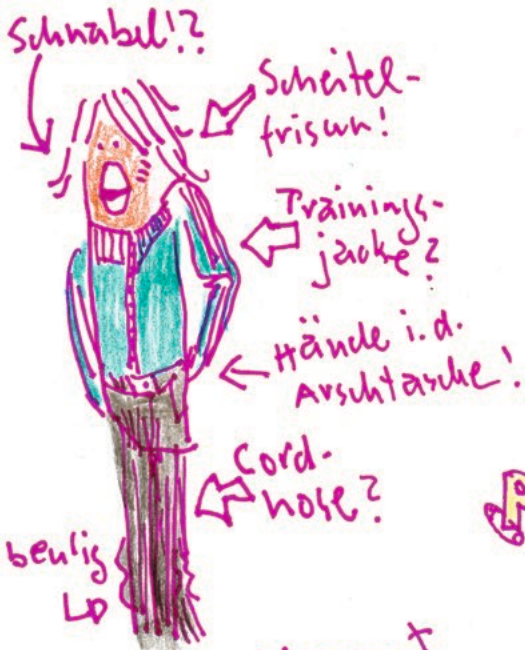 Schnabel!?
Scheitel-
frisun!
Trainings-
jacke?
Hände i.d.
Arschtasche!
Cord-
hose?
beulig